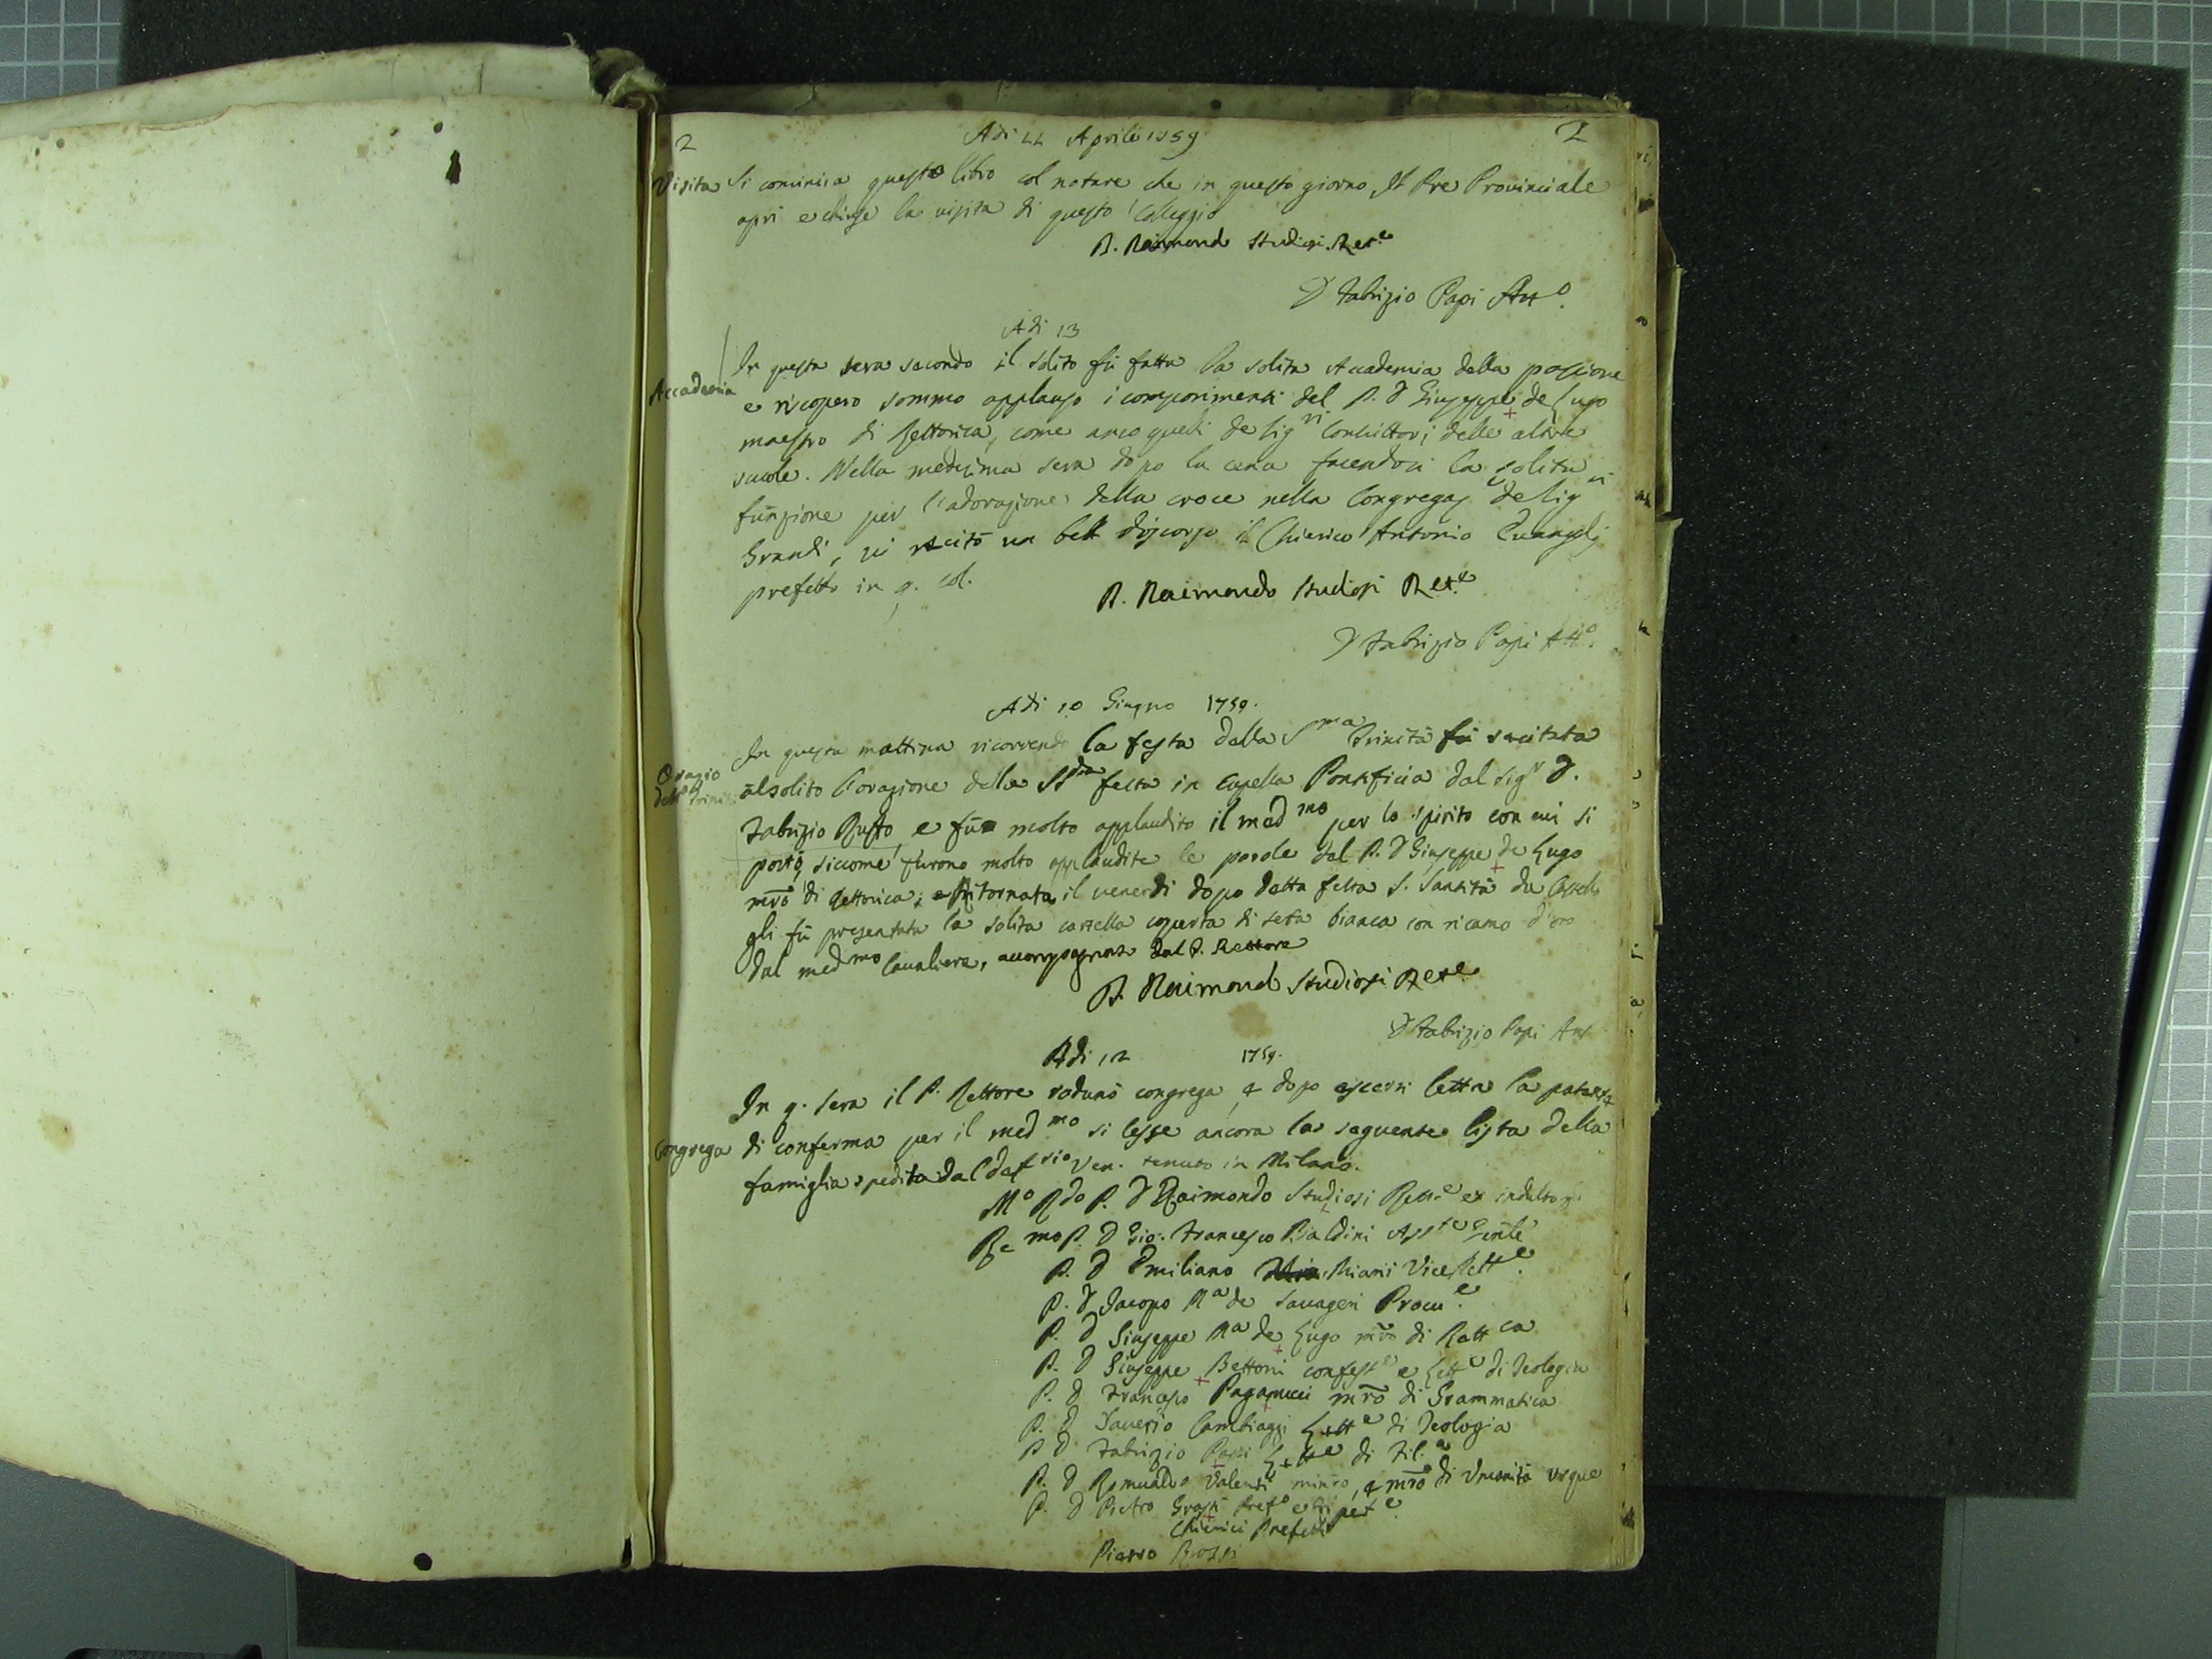 2
Adi 11 Aprile 1759
2
Visita
Si comincia questo libro col notare che in questo giorno Il Pre Provinciale
aprì e chiuse la visita di questo Colleggio
D. Raimondo Studiosi Rett.e
D Fabrizio Papi Att.o
Adi 13
Accademia
In questa sera secondo il solito fù fatta la solita Accademia della passione
e riscosero sommo applauso i componimenti del P. D Giuseppe de Lugo
maestro di Rettorica, come anco quelli de Sig.ri Convittori delle altre
scuole. Nella medesima sera dopo la cena facendosi la solita
funzione per l'adorazione della croce nella Congregaz de Sig.ri
Grandi, vi recitò un bell discorso il Chierico Antonio Evangelj
prefetto in q. col.
D. Raimondo Studiosi Rett.e
D Fabrizio Papi Att.o
Adi 10 Giugno 1759.
Orazio della Trinità
In questa mattina ricorrendo la festa della S.ma Trinità fù recitata
al solito l'orazione della SS.ma festa in Capella Pontificia dal Sig.r D.
Fabrizio Ruffo, e fù molto applaudito il med.mo per lo spirito con cui si
portò, siccome furono molto applaudite le parole del P. D Giuseppe de Lugo
mrõ di Rettorica; e Ritornata il venerdi dopo detta festa S. Santità da Castello
gli fù presentata la solita cartella coperta di seta bianca con ricamo d'oro
dal med.mo Cavaliere, accompagnato dal P. Rettore
D. Raimondo Studiosi Rett.e
D Fabrizio Papi Att
Adi 12 1759.
Congrega
In q. sera il P. Rettore radunò congrega, e dopo essersi letta la patente
di conferma per il med.mo si lesse ancora la seguente lista della
famiglia spedita dal def.rio Ven. tenuto in Milano.
M.o R.do P. D Raimondo Studiosi Rett.e ex indulto
Re.mo P. D Gio: Francesco Baldini Ass.te Gnlẽ
P. D Emiliano Miani Vice Rett.e
P. D Jacopo M.a de Sauageri Procu.e
P. D Giuseppe M.a de Lugo mrõ di Rett.ca
P. D Giuseppe Bettoni confess.e e Lett.e di Teologia
P. D Francesco Paganucci mrõ di Grammatica
P. D Saverio Cambiaggi Lett.e di Teologia
P. D Fabrizio Papi Lett.e di Fil.a
P. D Romualdo Valenti minrõ, e mrõ di Umanità usque
P. D Pietro Grassi Pref.o e Ripet.e
Chierici Prefetti
Pietro Rossi